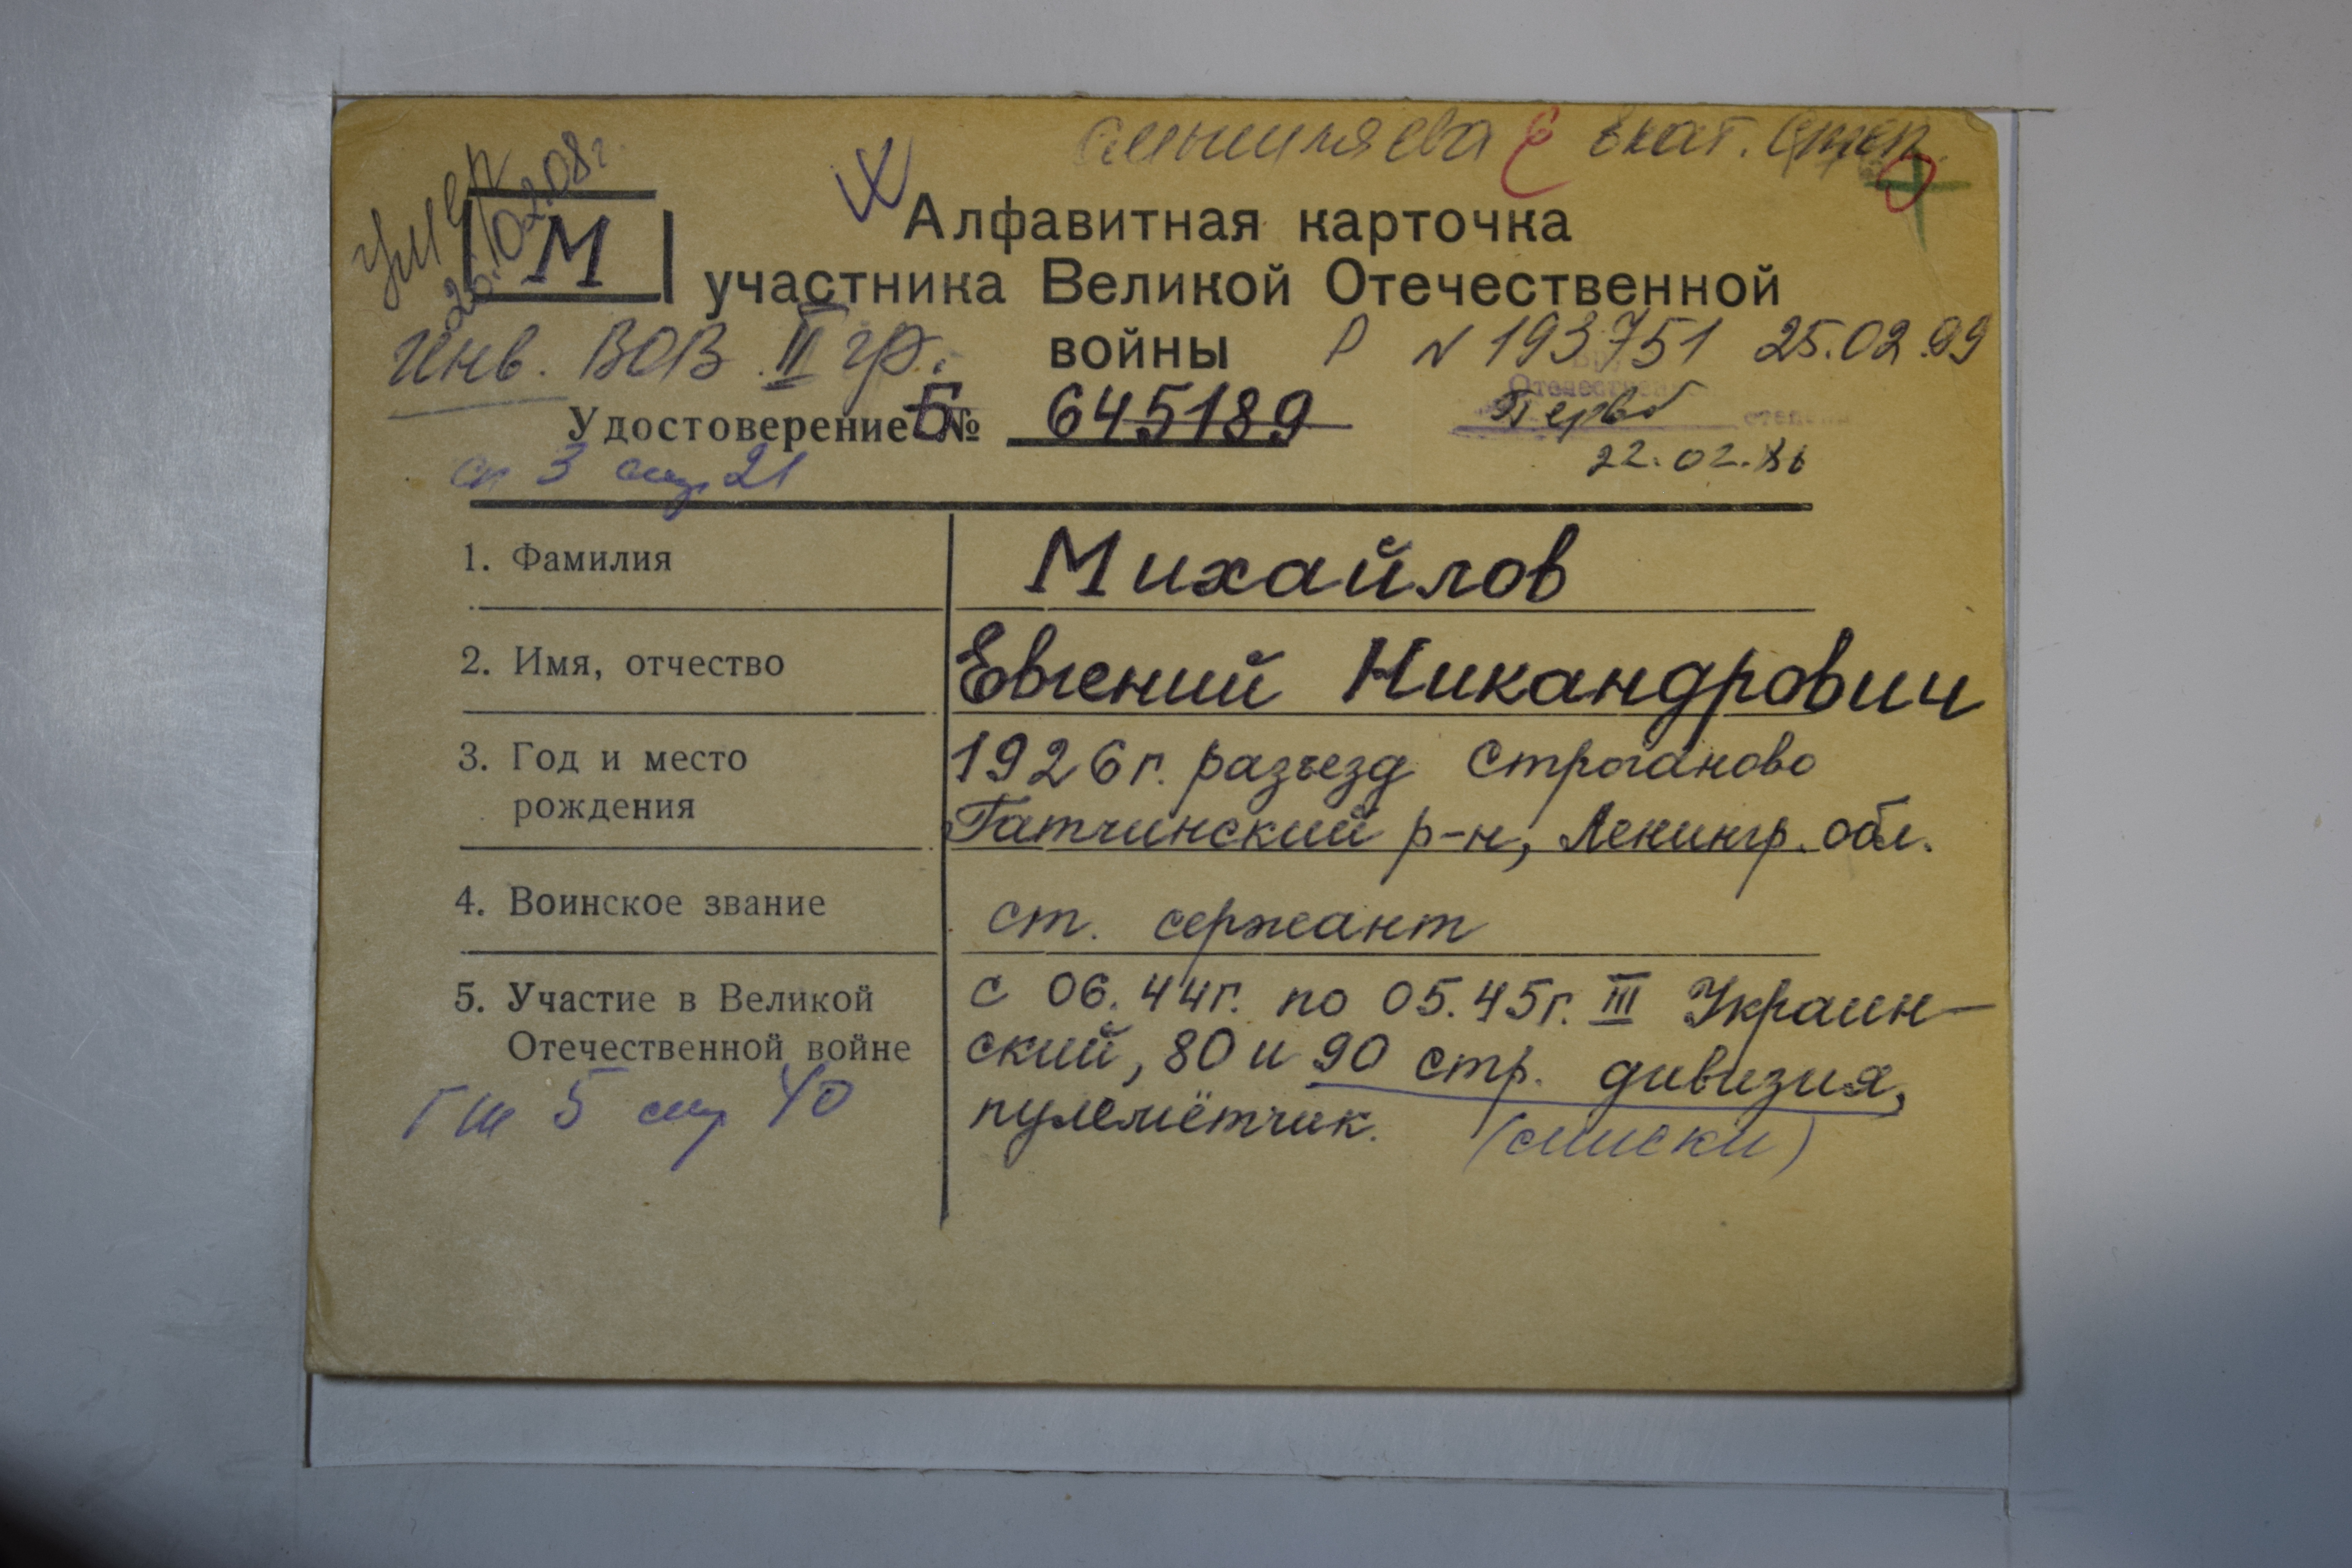 Екат.
умер
26.10.2008г.
М
Алфавитная карточка
участника Великой Отечественной
войны
Р N 193751 25.02.99
Инв. ВОВ II гр.
Удостоверение Б № 645189
Отечествен
степени
Первой
22.02.86
сп 3 стр 21
1. Фамилия Михайлов
2. Имя, отчество Евгений Никандрович
3. Год и место рождения 1926 г. разъезд Строганово
Гатчинский р-н, Ленингр. обл.
4. Воинское звание ст. сержант
5. Участие в Великой Отечественной войне с 06.44г. по 05.45г. III Украин-
ский, 80 и 90 стр. дивизия,
пулемётчик. (списки)
Гш 5 стр 40